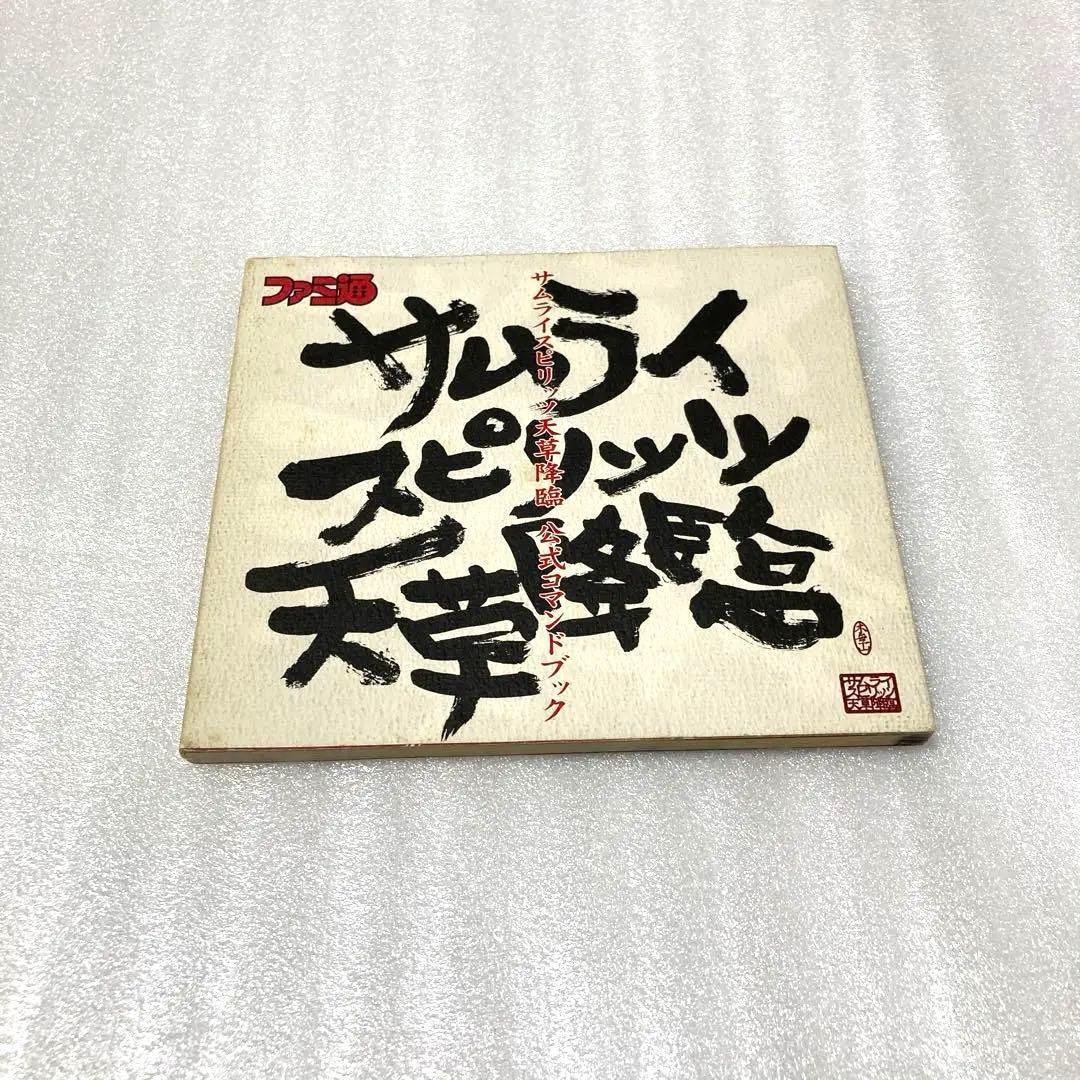 ファミ通
サムライ
スピリッツ
天草降臨
サムライスピリッツ天草降臨 公式コマンドブック
サムライ
スピリッツ
天草降臨